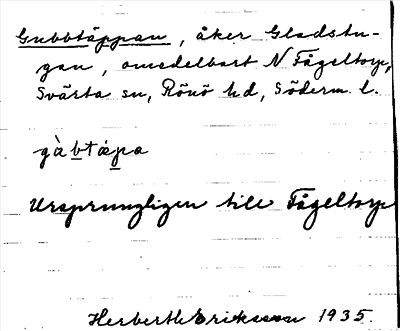 Gubbtäppan, åker Gladstu-
gan, omedelbart N Fågeltorp,
Svärta sn, Rönö hd, Söderm. l.
gàbtápa
Ursprungligen till Fågeltorp
Herberth Eriksson 1935.